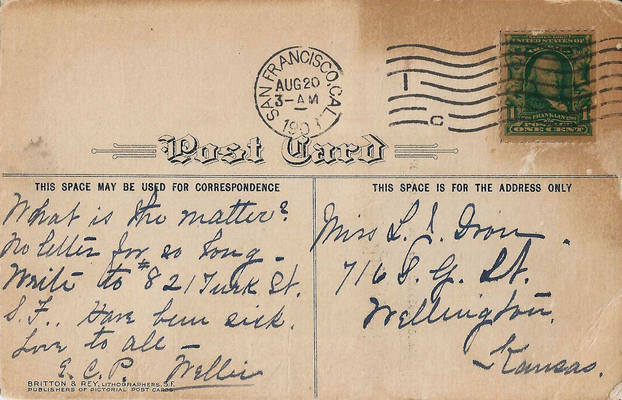 SAN FRANCISCO, CAL.
AUG 20
3-AM
190
1
C
UNITED STATES OF
FRANKLIN
POSTAGE
ONE CENT
Post Card
THIS SPACE MAY BE USED FOR CORRESPONDENCE
THIS SPACE IS FOR THE ADDRESS ONLY
What is the matter?
No letter for so long -
Write to #821 Turk St.
S.F.. Have been sick.
Love to all -
E. C. P. Wellie
BRITTON & REY, LITHOGRAPHERS, S.F.
PUBLISHERS OF PICTORIAL POST CARDS.
Miss L. I. Dron.
716 S. G. St.
Wellington.
Kansas.